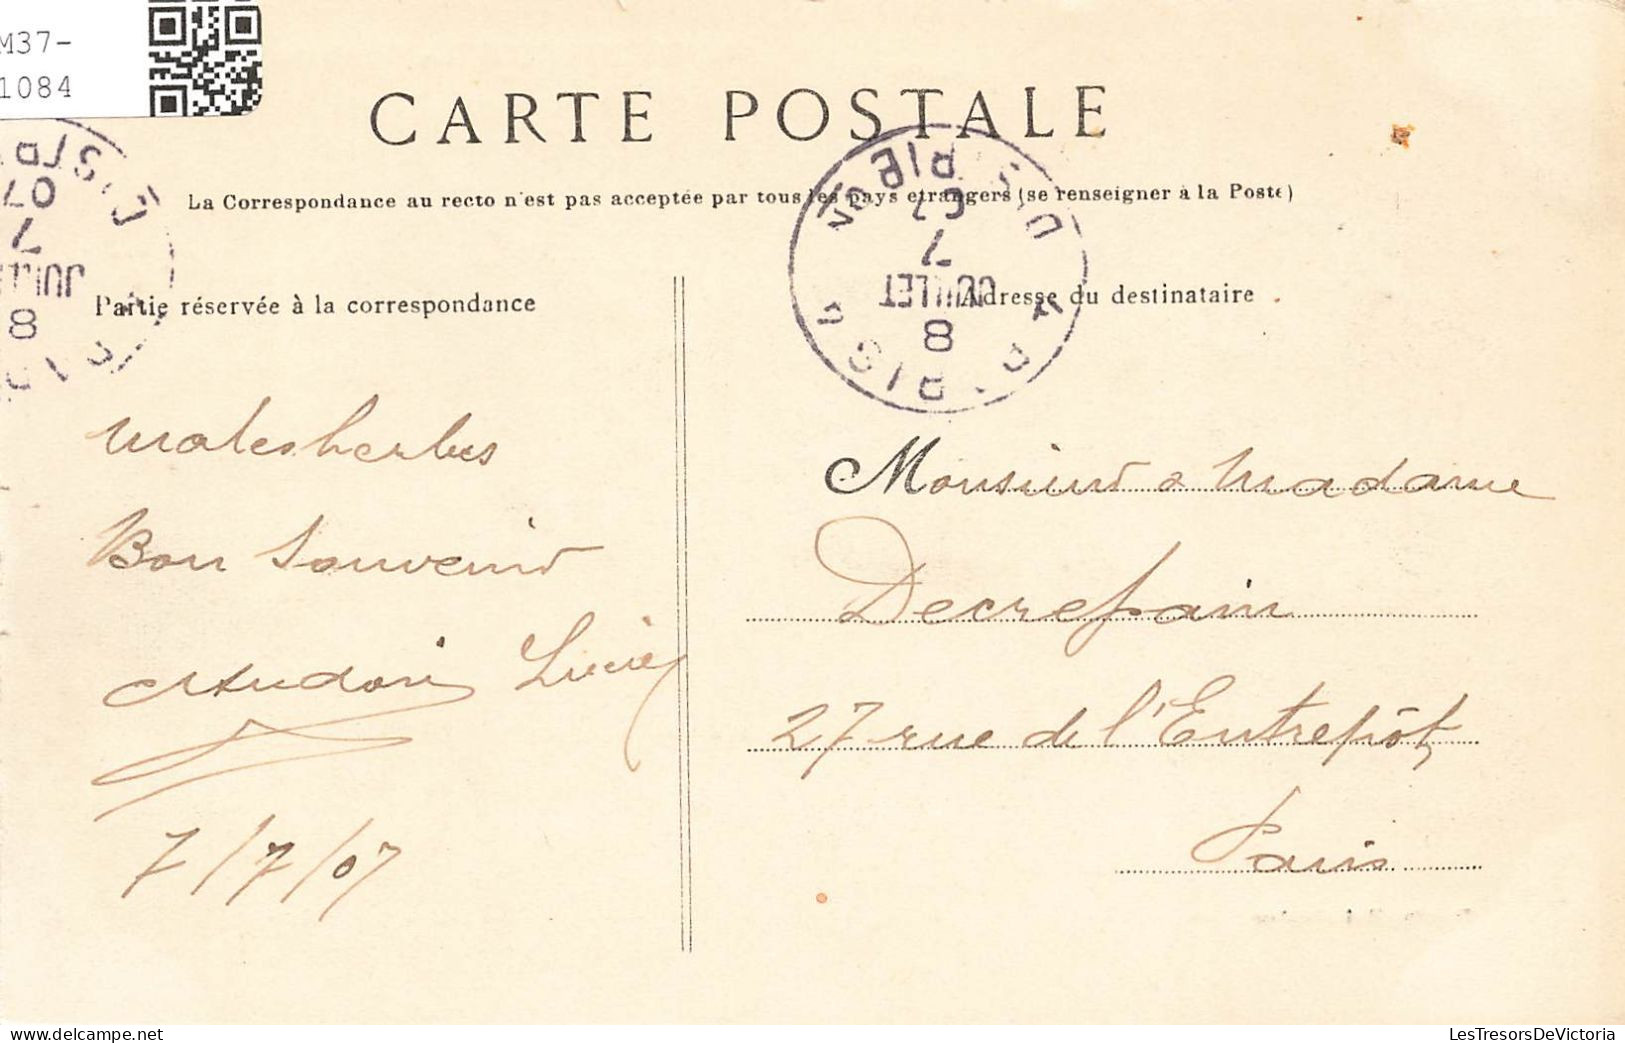 M37-
1084
CARTE POSTALE
La Correspondance au recto n'est pas acceptée par tous les pays etrangers (se renseigner à la Poste)
Partie réservée à la correspondance
Adresse du destinataire
07
7
JUILLET
8
7
JUIL
8
Malesherbes
Bon Souvenir
Lucie
7/7/07
Monsieur & Madame
Decrepain
27 rue de l'Entrepôt
Paris
delcampe.net
LesTresorsDeVictoria